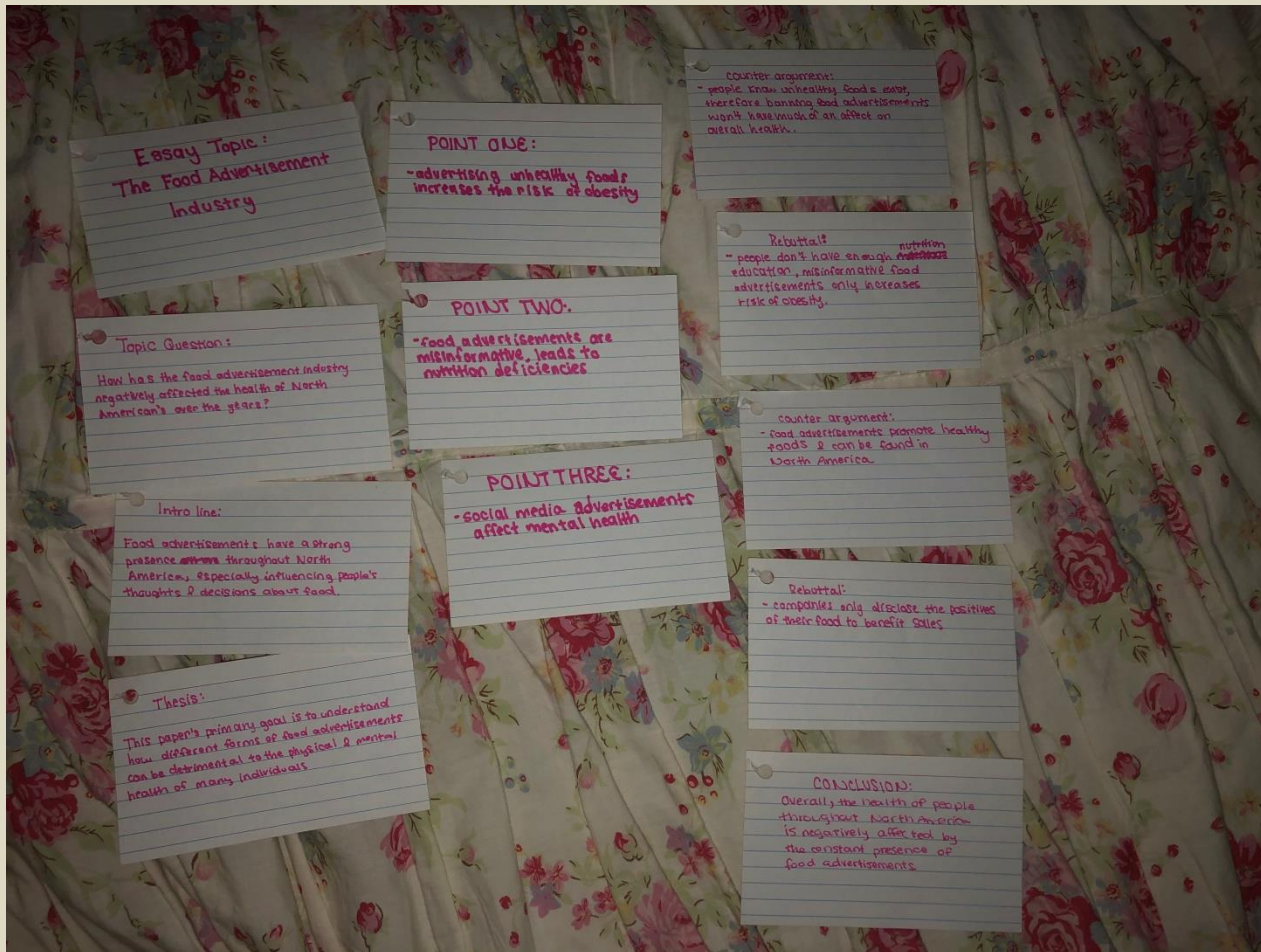 Essay Topic:
The Food Advertisement
Industry
Topic Question:
How has the food advertisement industry
negatively affected the health of North
American's over the years?
Intro line:
Food advertisements have a strong
presence throughout North
America, especially influencing people's
thoughts & decisions about food.
Thesis:
This paper's primary goal is to understand
how different forms of food advertisements
can be detrimental to the physical & mental
health of many individuals
POINT ONE:
-advertising unhealthy foods
increases the risk of obesity
POINT TWO:
-food advertisements are
misinformative, leads to
nutrition deficiencies
POINT THREE:
-social media advertisements
affect mental health
counter argument:
- people know unhealthy foods exist,
therefore banning food advertisements
won't have much of an affect on
overall health.
Rebuttal:
- people don't have enough nutrition
education, misinformative food
advertisements only increases
risk of obesity.
counter argument:
- food advertisements promote healthy
foods & can be found in
North America
Rebuttal:
- companies only disclose the positives
of their food to benefit sales
CONCLUSION:
Overall, the health of people
throughout North America
is negatively affected by
the constant presence of
food advertisements